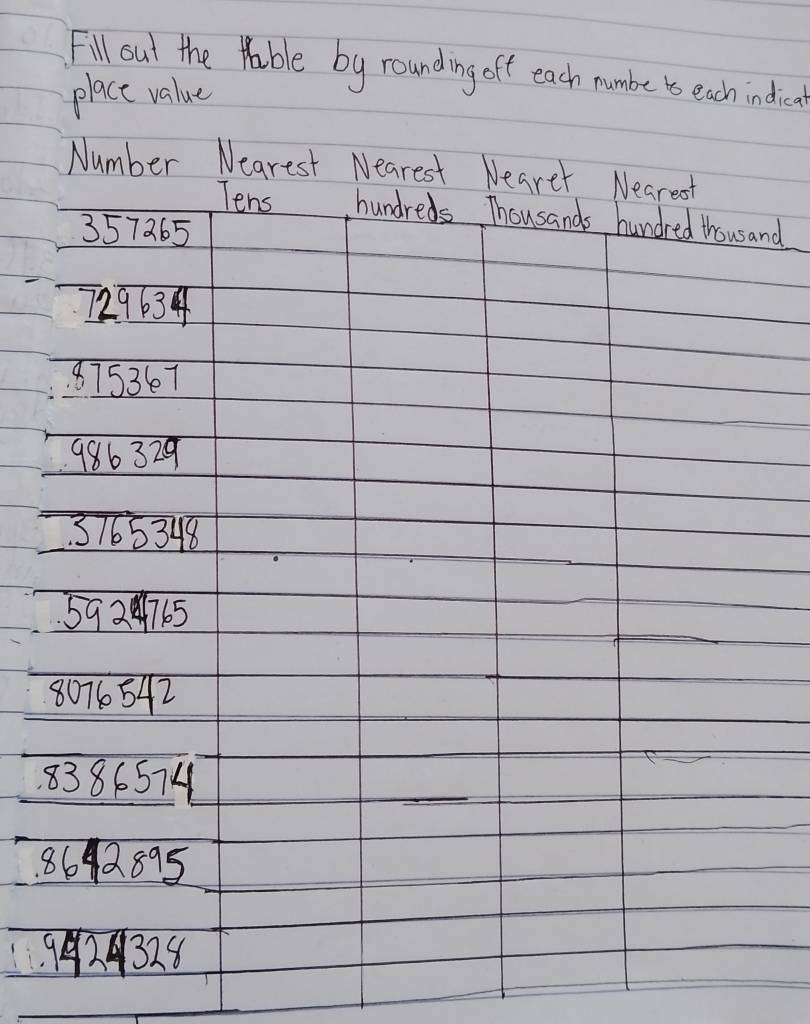 Fill out the table by rounding off each numbe to each indicat
place value
Number Nearest Nearest Nearet Nearest
Tens hundreds Thousands hundred thousand
357265
.729634
.875367
.986329
.3765348
.5924765
8076542
.8386574
.8642895
.9424328